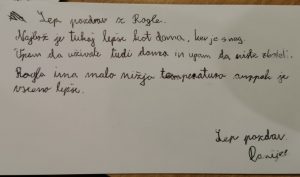 Lep pozdrav iz Rogle.
Najbolš je tukaj lepše kot doma, ker je sneg.
Upam da uživate tudi doma in upam da niste zboleli.
Rogla ima malo nižja temperatura ampak je
vseeno lepše.
Lep pozdrav